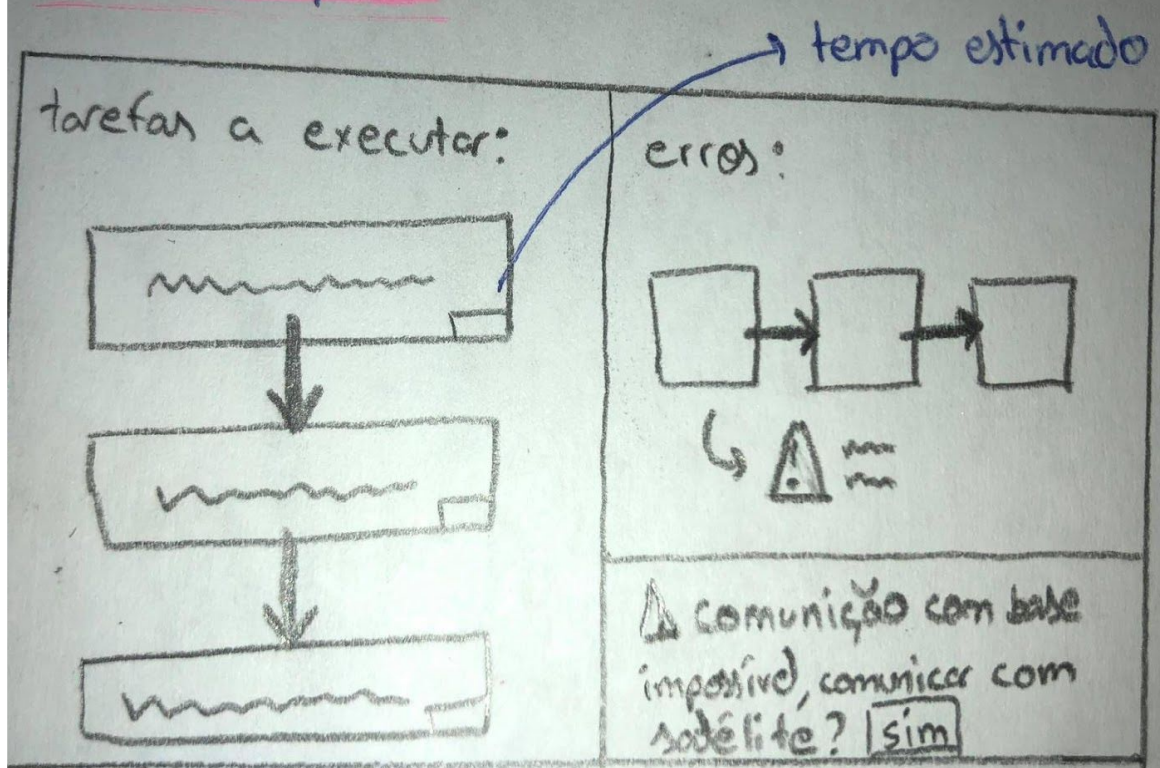 tempo estimado
tarefas a executar:
erros:
comunição com base
impossível, comunicar com
satélite? sim